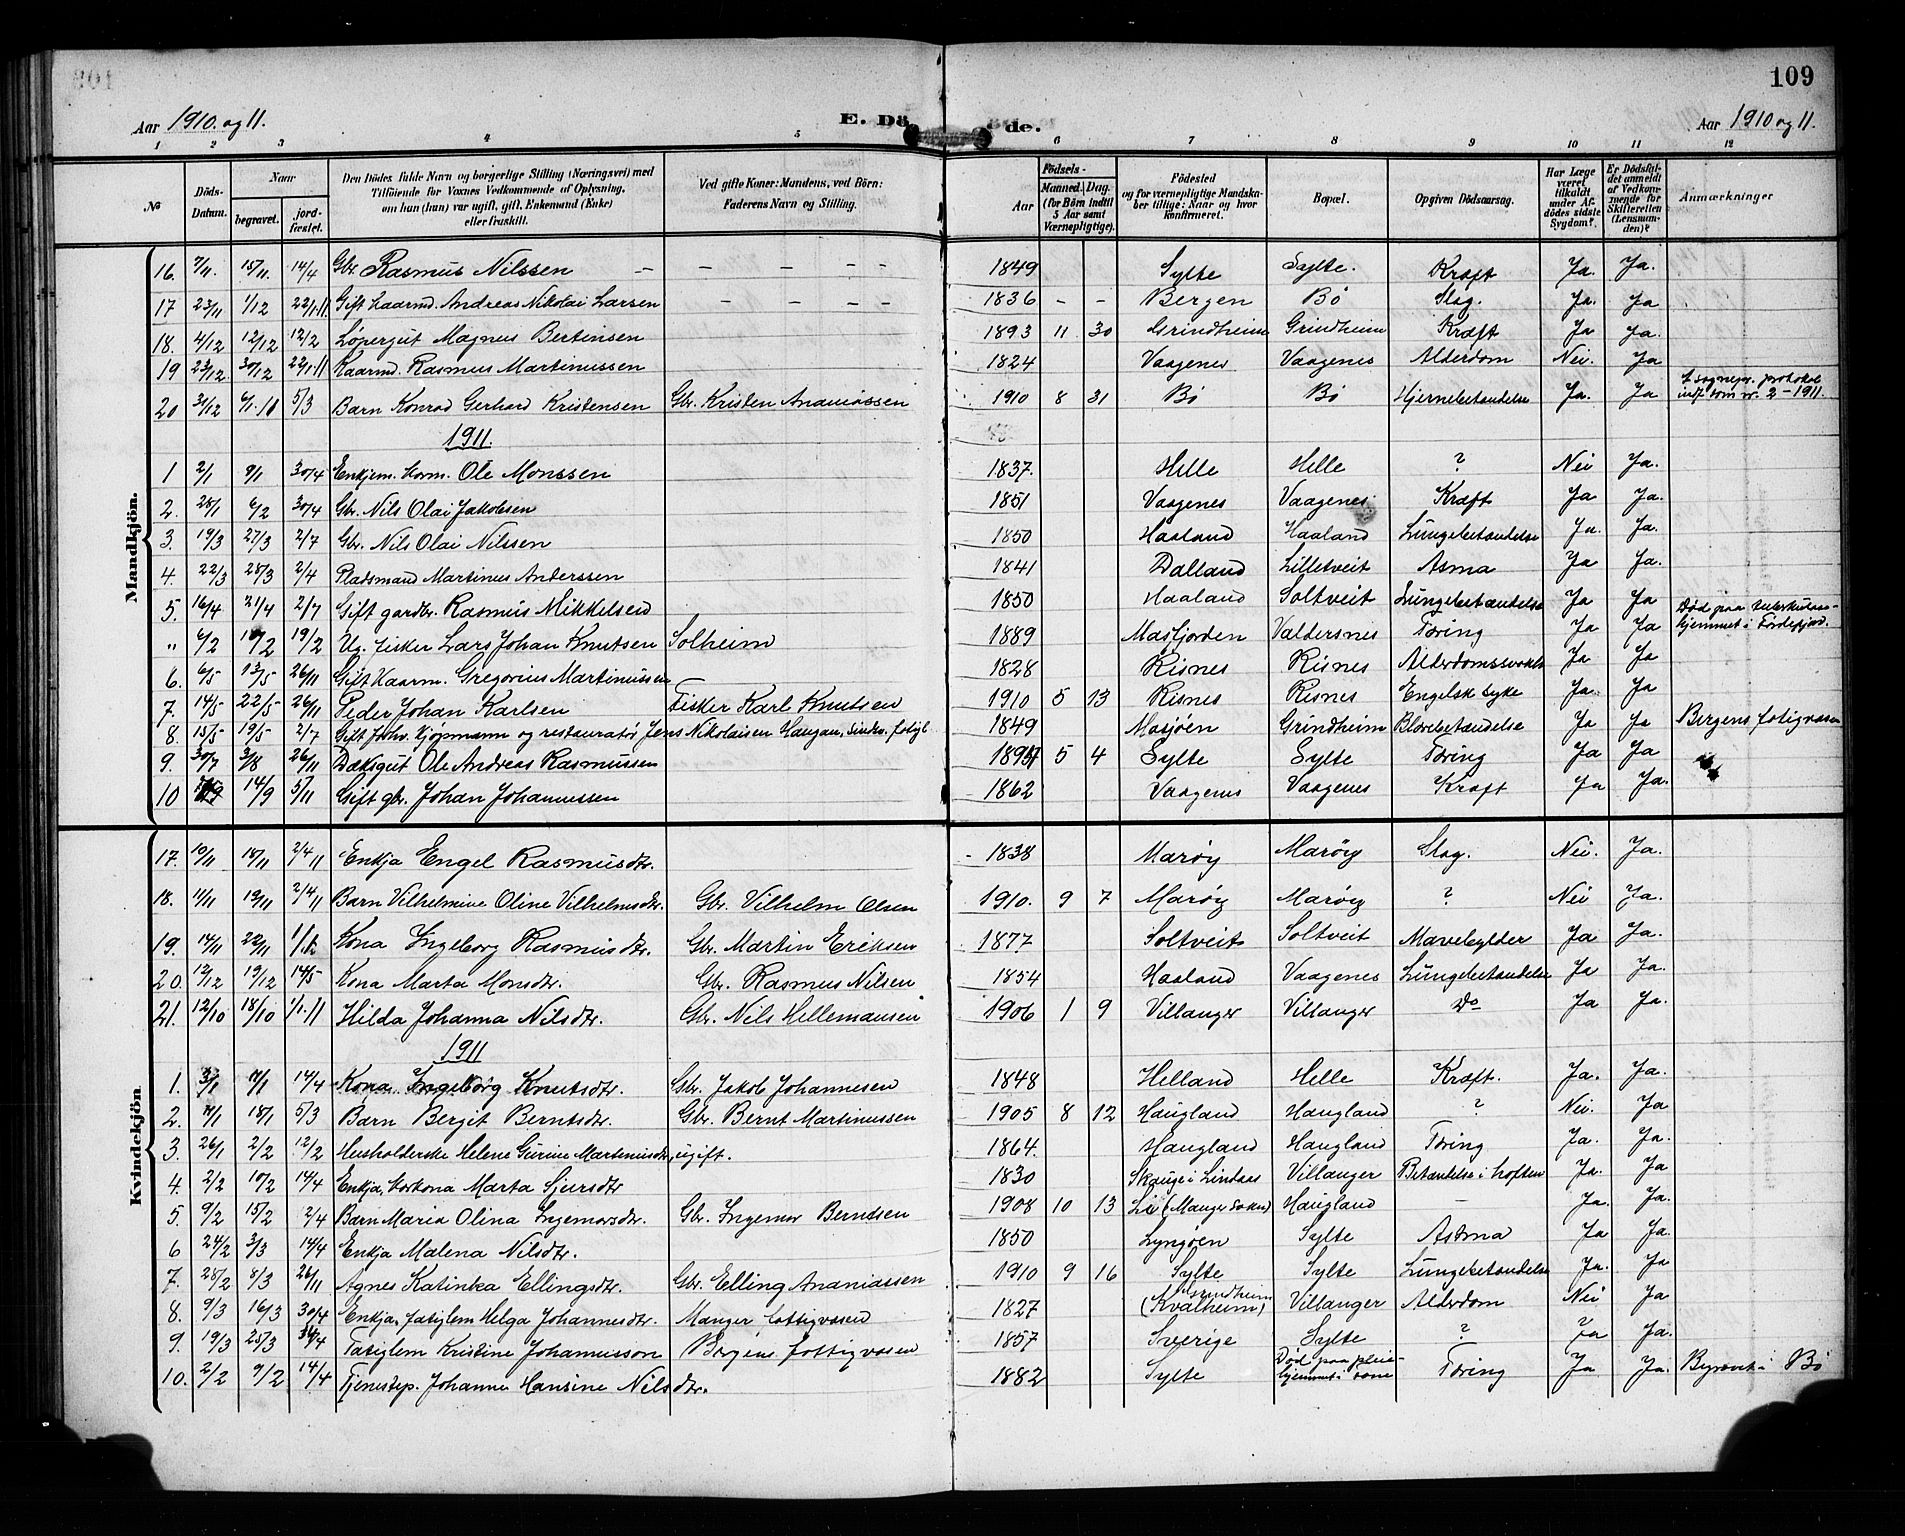 109
Aar 1910. og 11.
E. Dö de.
Aar 1910 og 11.
1 2 3 4 5 6 7 8 9 10 11 12
No
Döds-Datum.
Naar
begravet.
jord-fæstet.
Den Dödes fulde Navn og borgerlige Stilling (Næringsvei) med
Tilföiende for Voxnes Vedkommende af Oplysning,
om han (hun) var ugift, gift, Enkemand (Enke)
eller fraskilt.
Ved gifte Koner: Mandens, ved Börn:
Faderens Navn og Stilling.
Aar
Födsels-
Maaned. Dag.
(for Börn indtil
5 Aar samt
Værnepligtige).
Födested
og for værnepligtige Mandskaber tillige: Naar og hvor
konfirmeret.
Bopæl.
Opgiven Dödsaarsag.
Har Læge
været
tilkaldt
under Afdödes sidste
Sygdom?
Er Dödsfaldet anmeldt
af Vedkommende for
Skifteretten
(Lensmanden)?
Anmærkninger
Mandkjön.
16. 7/11 15/11 14/4 Gbr. Rasmus Nilssen – – – – – 1849 Sylte Sylte. Kræft Ja. Ja.
17 23/11 1/12 22/1.11 Gift kaarmd. Andreas Nikolai Larsen – – – – 1836 – – Bergen Bö Slag. Ja. Ja
18. 4/12 12/12 12/2 Löpergut Magnus Bertinsen 1893 11 30 Grindheim Grindheim Kræft Ja Ja.
19 23/12. 30/12 22/1.11 Kaarmd. Rasmus Martinussen 1824 Vaagenes Vaagenes Alderdom Nei. Ja
20 31/12 5/3 Barn Konrad Gerhard Kristensen Gbr. Kristen Ananiassen 1910 8 31 Bö Bö Hjernebetændelse Ja. Ja I sognepr. protokol indf. som nr. 2 – 1911.
1911.
1 2/1 9/1 30/4 Enkjem. Ole Monssen 1837. Helle Helle ? Nei Ja.
2. 28/1 6/2 30/4 Gbr. Nils Olai Jakobsen 1851 Vaagenes Vaagenes Kræft Ja Ja.
3. 19/3 27/3 2/7 Gbr. Nils Olai Nilssen 1850 Haaland Haaland Lungebetændelse Ja. Ja.
4. 22/3 28/3 2/4 Pladsmand Martinus Anderssen 1841 Dalland Lilletveit Asma Ja Ja.
5. 16/4 21/4 2/7 Gift gardbr. Rasmus Mikkelsen 1850 Haaland Soltveit Lungebetændelse Ja Ja
" 6/2 19/2 Ug. fisker Lars Johan Knutsen Solheim 1889 Masfjorden Valdersnes Tæring Ja Ja Död paa tuberkulosehjemmet i Fördefjord.
6. 6/5 13/5 26/11 Gift Kaarm. Gregorius Martinussen 1828 Risnes Risnes Alderdomssvækk. Ja Ja
7. 14/5 22/5 26/11 Peder Johan Karlsen Fisker Karl Knutsen 1910 5 13 Risnes Risnes Engelsk syke Ja. Ja
8. 15/5 19/5 2/7 Gift Kjöpmann og restauratör Jens Nikolaisen Haugan, 1849 Mosjöen Grindheim Blærebetændelse Ja Ja Bergens fatigvæsen
9. 30/7 3/8 26/11 Dæksgut Ole Andreas Rasmussen 5 4 Sylte Sylte Tæring Ja Ja
10 14/9 5/11 Gift gbr. Johan Johannessen 1862 Vaagenes Vaagenes Kræft Ja Ja.
Kvindekjön
17. 10/11 18/11 2/4 11 Enkja Engel Rasmusdtr. 1838 Maröy Maröy Slag. Nei. Ja.
18. 11/11 19/11 2/4 11 Barn Vilhelmine Oline Vilhelmsdtr. Gbr. Vilhelm Olsen 1910. 9 7 Maröy Maröy ? Nei Ja.
19. 14/11 22/11 Kona Ingeborg Rasmusdtr. Gbr. Martin Eriksen 1877 Soltveit Soltveit Mavebylder Ja Ja.
20. 12/12 19/12 14/5 Kona Marta Monsdtr. Gbr. Rasmus Nilsen 1854 Haaland Vaagenes Lungebetændelse Ja Ja.
21. 12/10 18/10 1/1.11 Hilda Johanna Nilsdtr. Gbr. Nils Hellemansen 1906 1 9 Villanger Villanger Do Ja Ja.
1911
1. 3/1 11/1 14/4 Kona Ingeborg Knutsdtr. Gbr. Jakob Johannesen 1848 Helland Helle Kræft. Ja. Ja.
2. 11/1 18/1 5/3 Barn Bergit Berntsdtr. Gbr. Bernt Martinussen 1905 8 12 Haugland Haugland ? Nei. Ja
3. 26/1 2/2 12/2 Husholderske Helene Gurine Martinusdtr., ugift. 1864. Haugland Haugland Tæring Ja. Ja.
4. 2/2 10/2 14/4 Enkja, Marta Sjursdtr 1830 Skauge i Lindaas Villanger Betændelse i hoften Ja. Ja
5. 9/2 15/2 2/4 Barn Maria Olina Ingemorsdtr. Gbr. Ingemor Berndsen 1908 10 13 Li (Manger sokn) Haugland – Ja. Ja.
6 24/2 3/3 14/4 Enkja Malena Nilsdtr. 1850 Lyngöen Sylte Astma Ja Ja.
7. 28/2 8/3 26/11 Agnes Katinka Ellingsdtr. Gbr. Elling Ananiassen 1910 9 16 Sylte Sylte Lungebetændelse Ja. Ja
8. 9/3 16/3 30/4 Enkja, fatiglem Helga Johannesdtr. Manger fattigvæsen 1827 (Kvalheim) Villanger Alderdom Nei Ja
9. 19/3 25/3 Fatiglem Kristine Johannesson Bergens fattigvæsen 1857 Sverige Sylte ? Ja Ja.
10. 2/2 9/2 14/4 Tjenestep. Johanne Hansine Nilsdtr. 1882 Sylte Död paa pleiehjemmet i Tæring Ja Ja. Bö